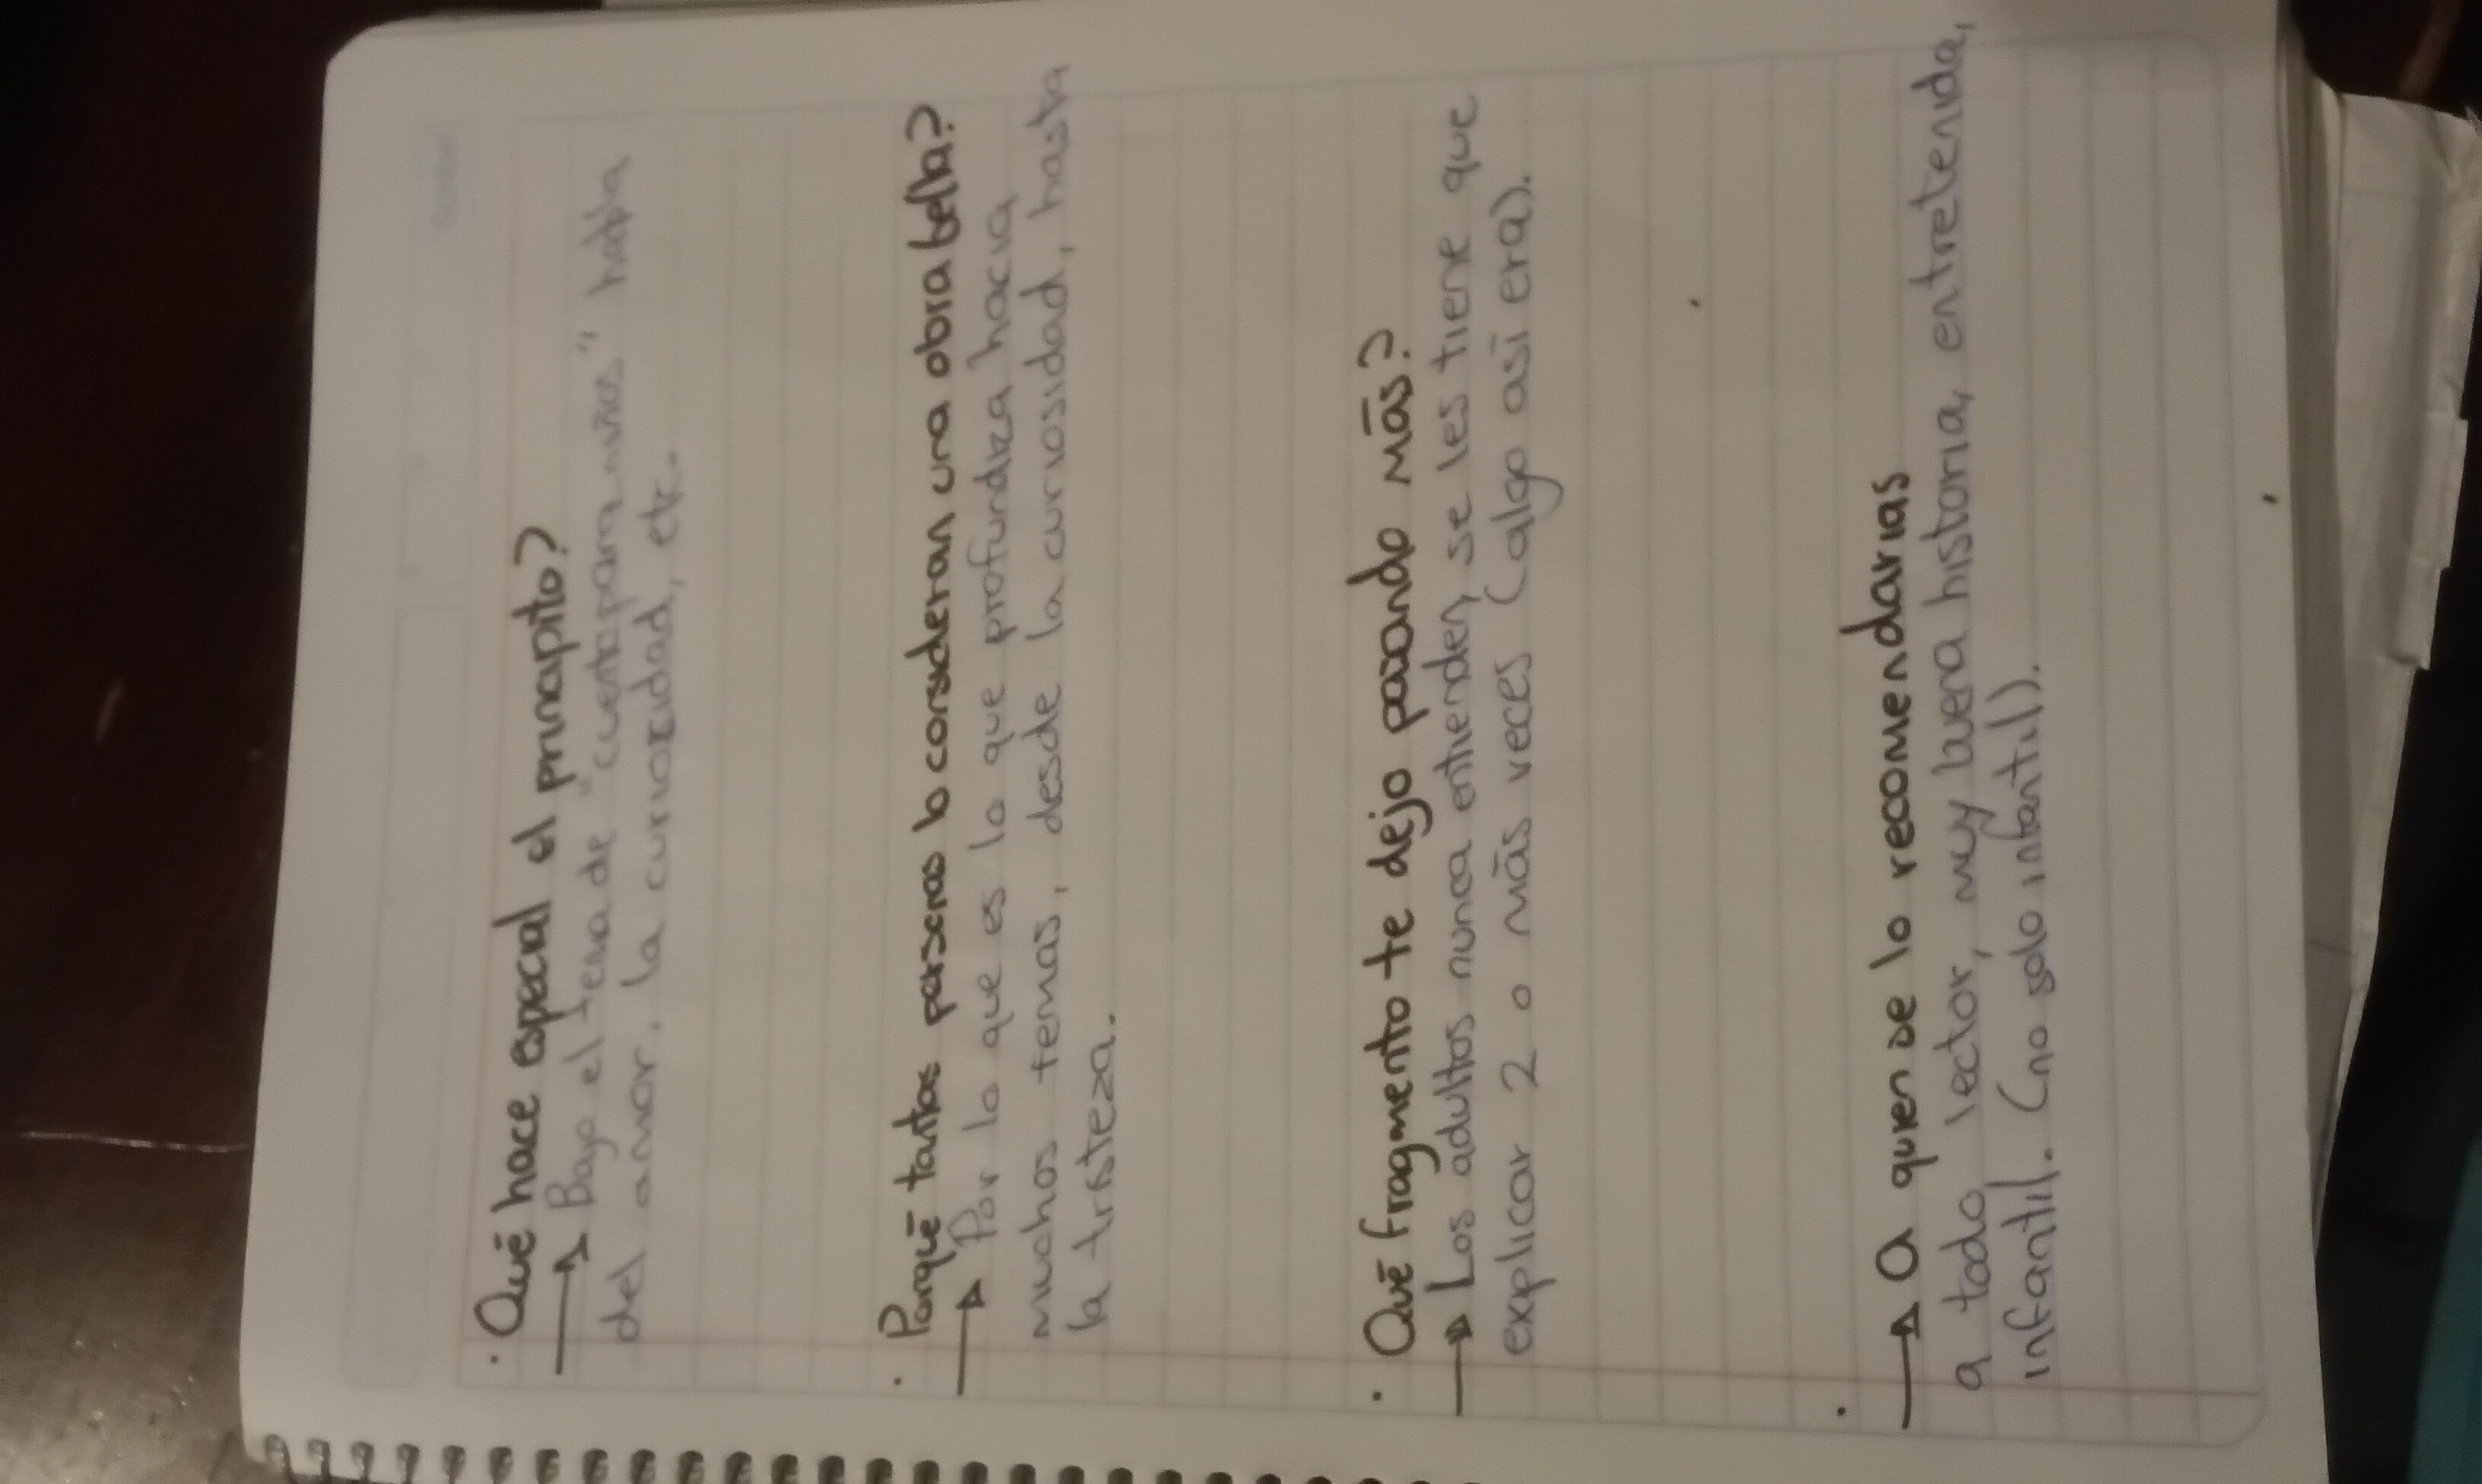 · Qué hace especial el principito?
→ Bajo el tema de "cuento para niños" habla
del amor, la curiosidad, etc.
· Porqué tantas personas lo consideran una obra bella?
→ Por lo que es lo que profundiza hacia
muchos temas, desde la curiosidad, hasta
la tristeza.
· Qué fragmento te dejo pasando más?
→ Los adultos nunca entienden, se les tiene que
explicar 2 o más veces (algo asi era).
·
→ A quien se lo recomendarias
a todo lector, muy buena historia, entretenida,
infantil. (no solo infantil).